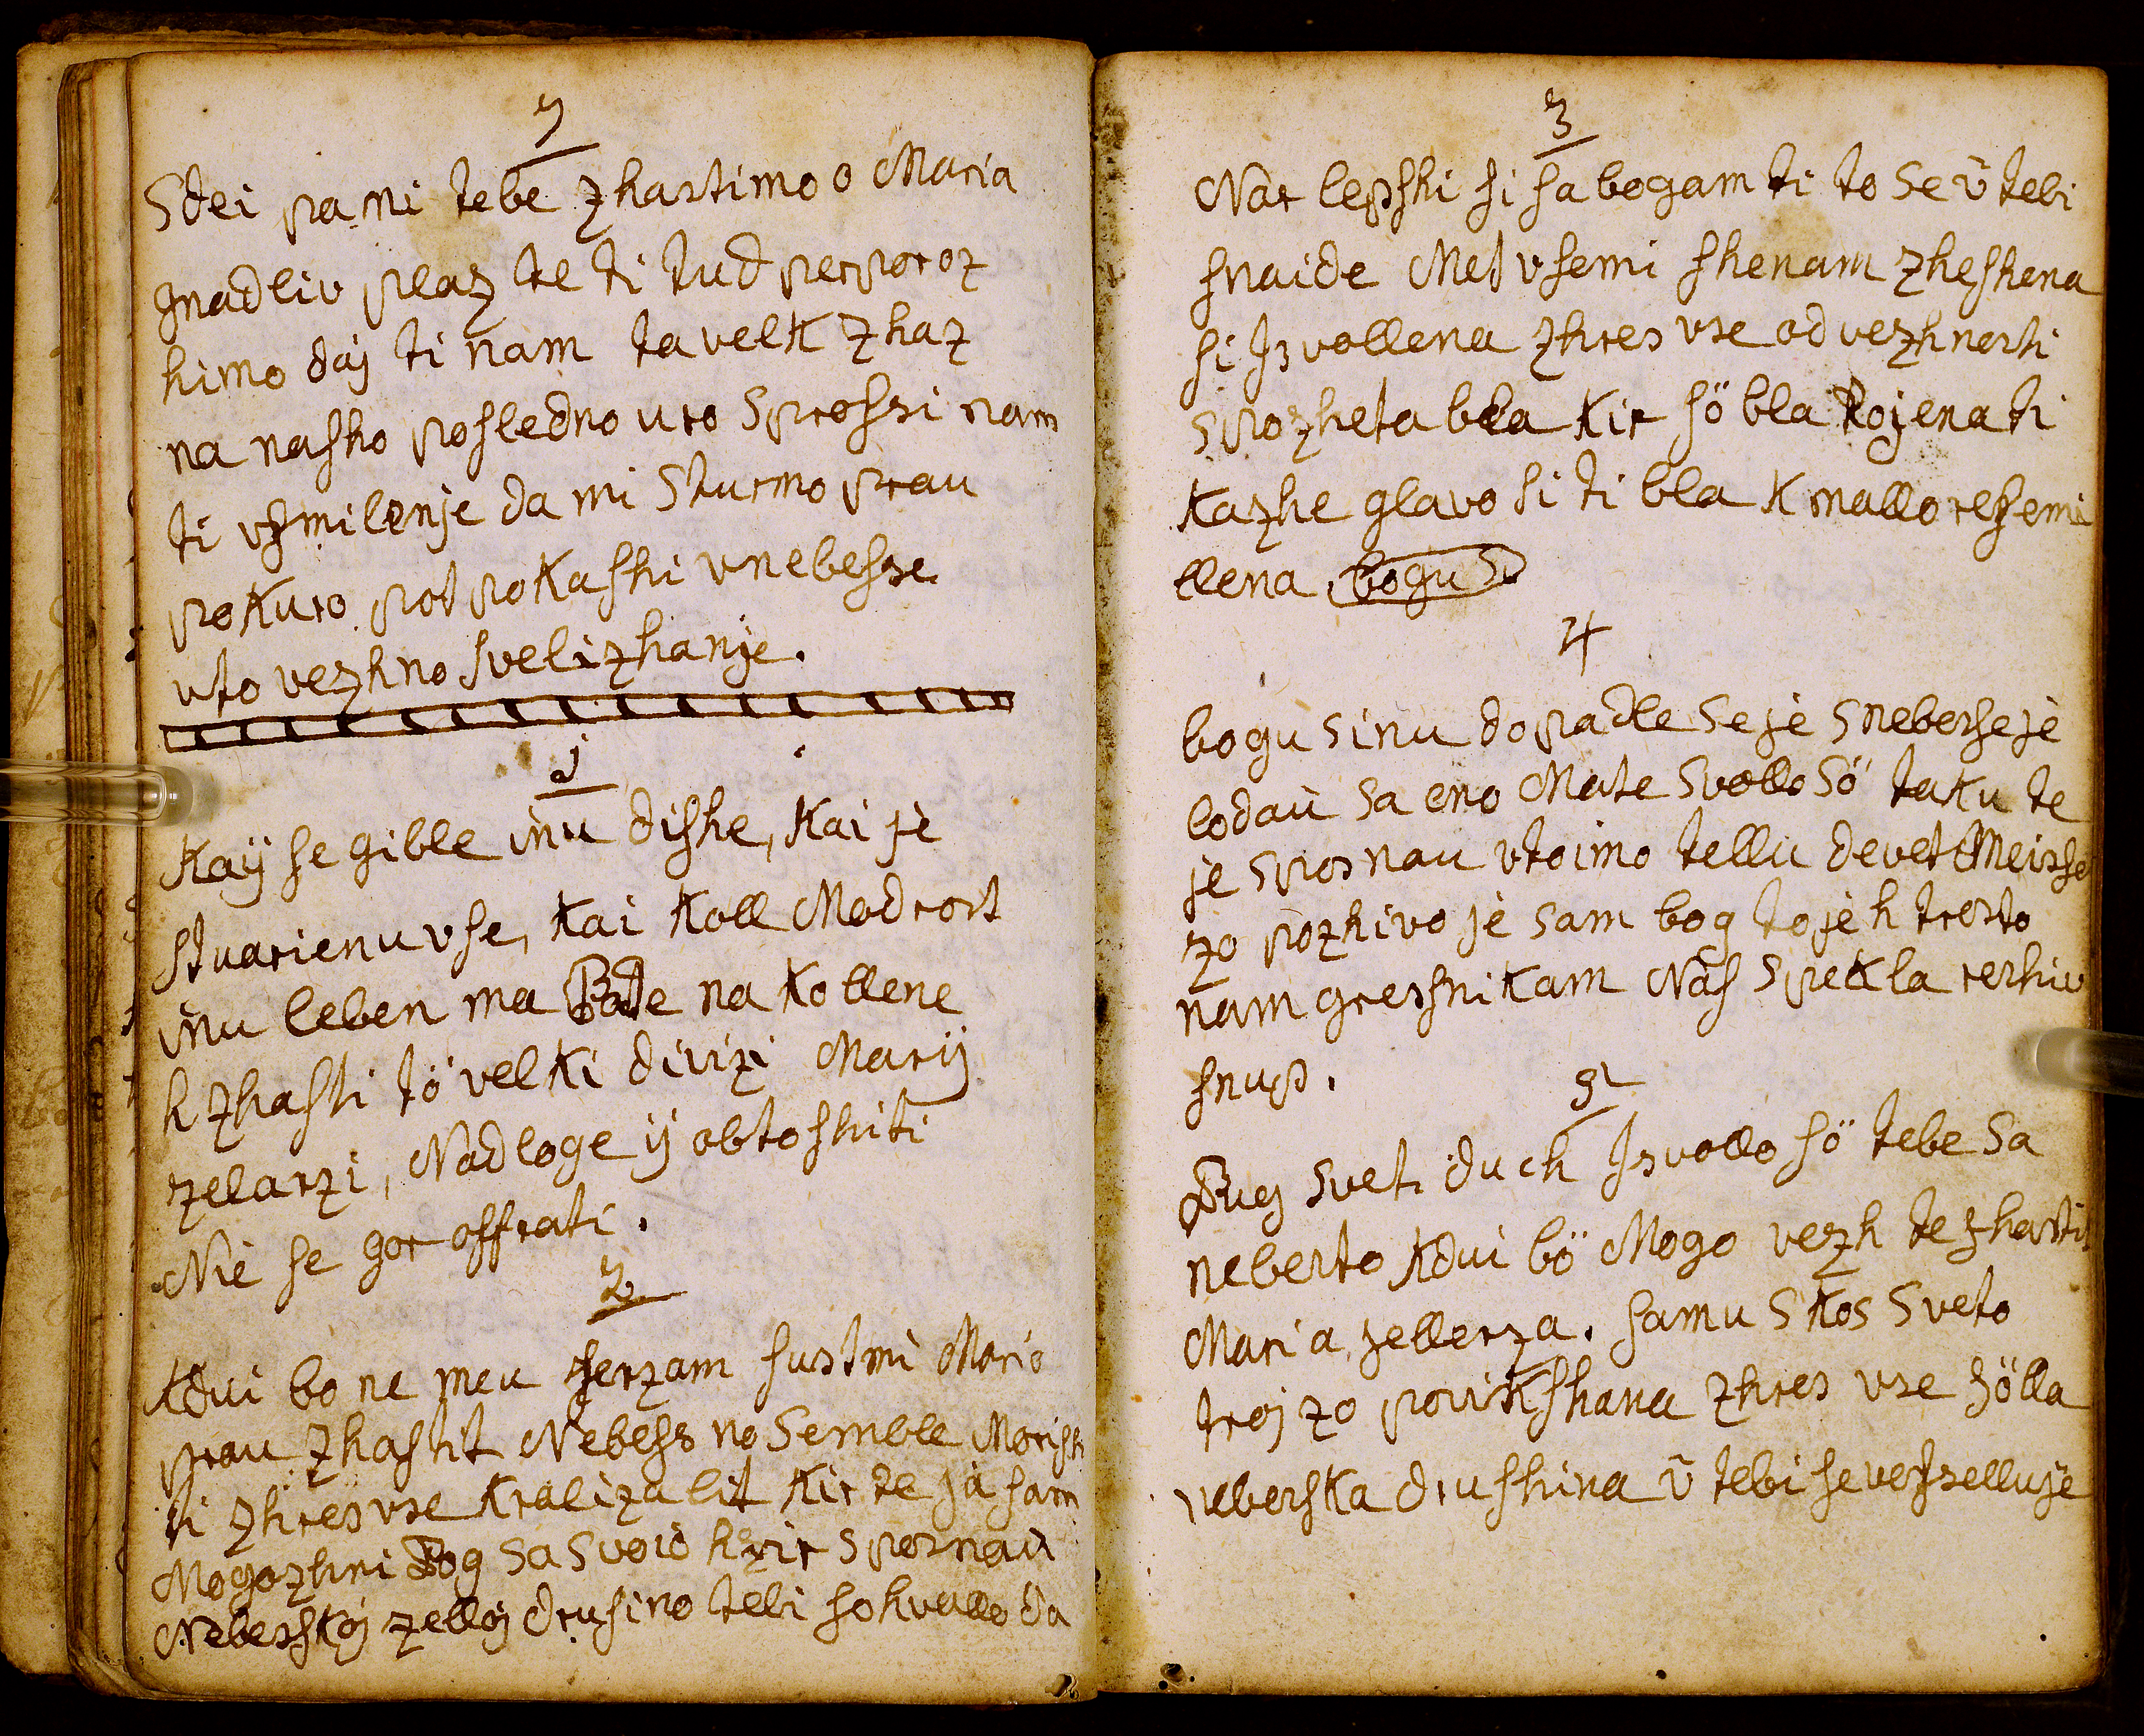 7
Sdei pa mi tebe zhastimo o Maria
gnadliv plaz te ti tud perporoz
himo daj ti nam ta velk zhaz
na nasho posledno uro sprossi nam
ti vsmilenje da mi sturmo prau
pokuro pot pokashi v nebesse
vto vezhno svelizhanje.
1
Kaÿ se gible inu dishe, Kai jè
stvarienu vse, Kai Koll Modrost
inu leben ma Pade na Kollene
h zhasti tö velki divizi Marij
zelarzi, Nadloge ij obtoshiti
Niè se gor offrati.
2
Kdui bo ne meu serzam sustmi Mario
prau zhastit Nebess no Semble Morish
ti zhres vse Kralizu lit Kir te jà sam
Mogozhni Bog sa svoiò hzir sposnaù
Nebesskoj zelloj drusino tebi so hvallo da
3
Nar lepshi si sa bogam ti to se ū tebi
snaide Met vsemi shenam zheshena
si Isvollena zhres vse od vezhnosti
spozheta bla Kir sö bla Rojena ti
Kazhe glavo si ti bla K mallo ressemi
llena bogu S
4
bogu sinu dopadle se jè snebesse jè
lodaù sa eno Mate svollo sö taku te
je sposnau vtoimo tellu devet Meisse
zo pozhivo jè sam bog to jè h trosto
nam gressnikam Näs spekla reshiv
snup.
5
Bug sveti duch Isvollo sö tebe sa
nebesto Kdui bö Mogo vezh te zhastit
Maria, zellerza. samu skos sveto
troj zo povikshana zhres vse zölla
nebeska drushina ū tebi se vesselluje